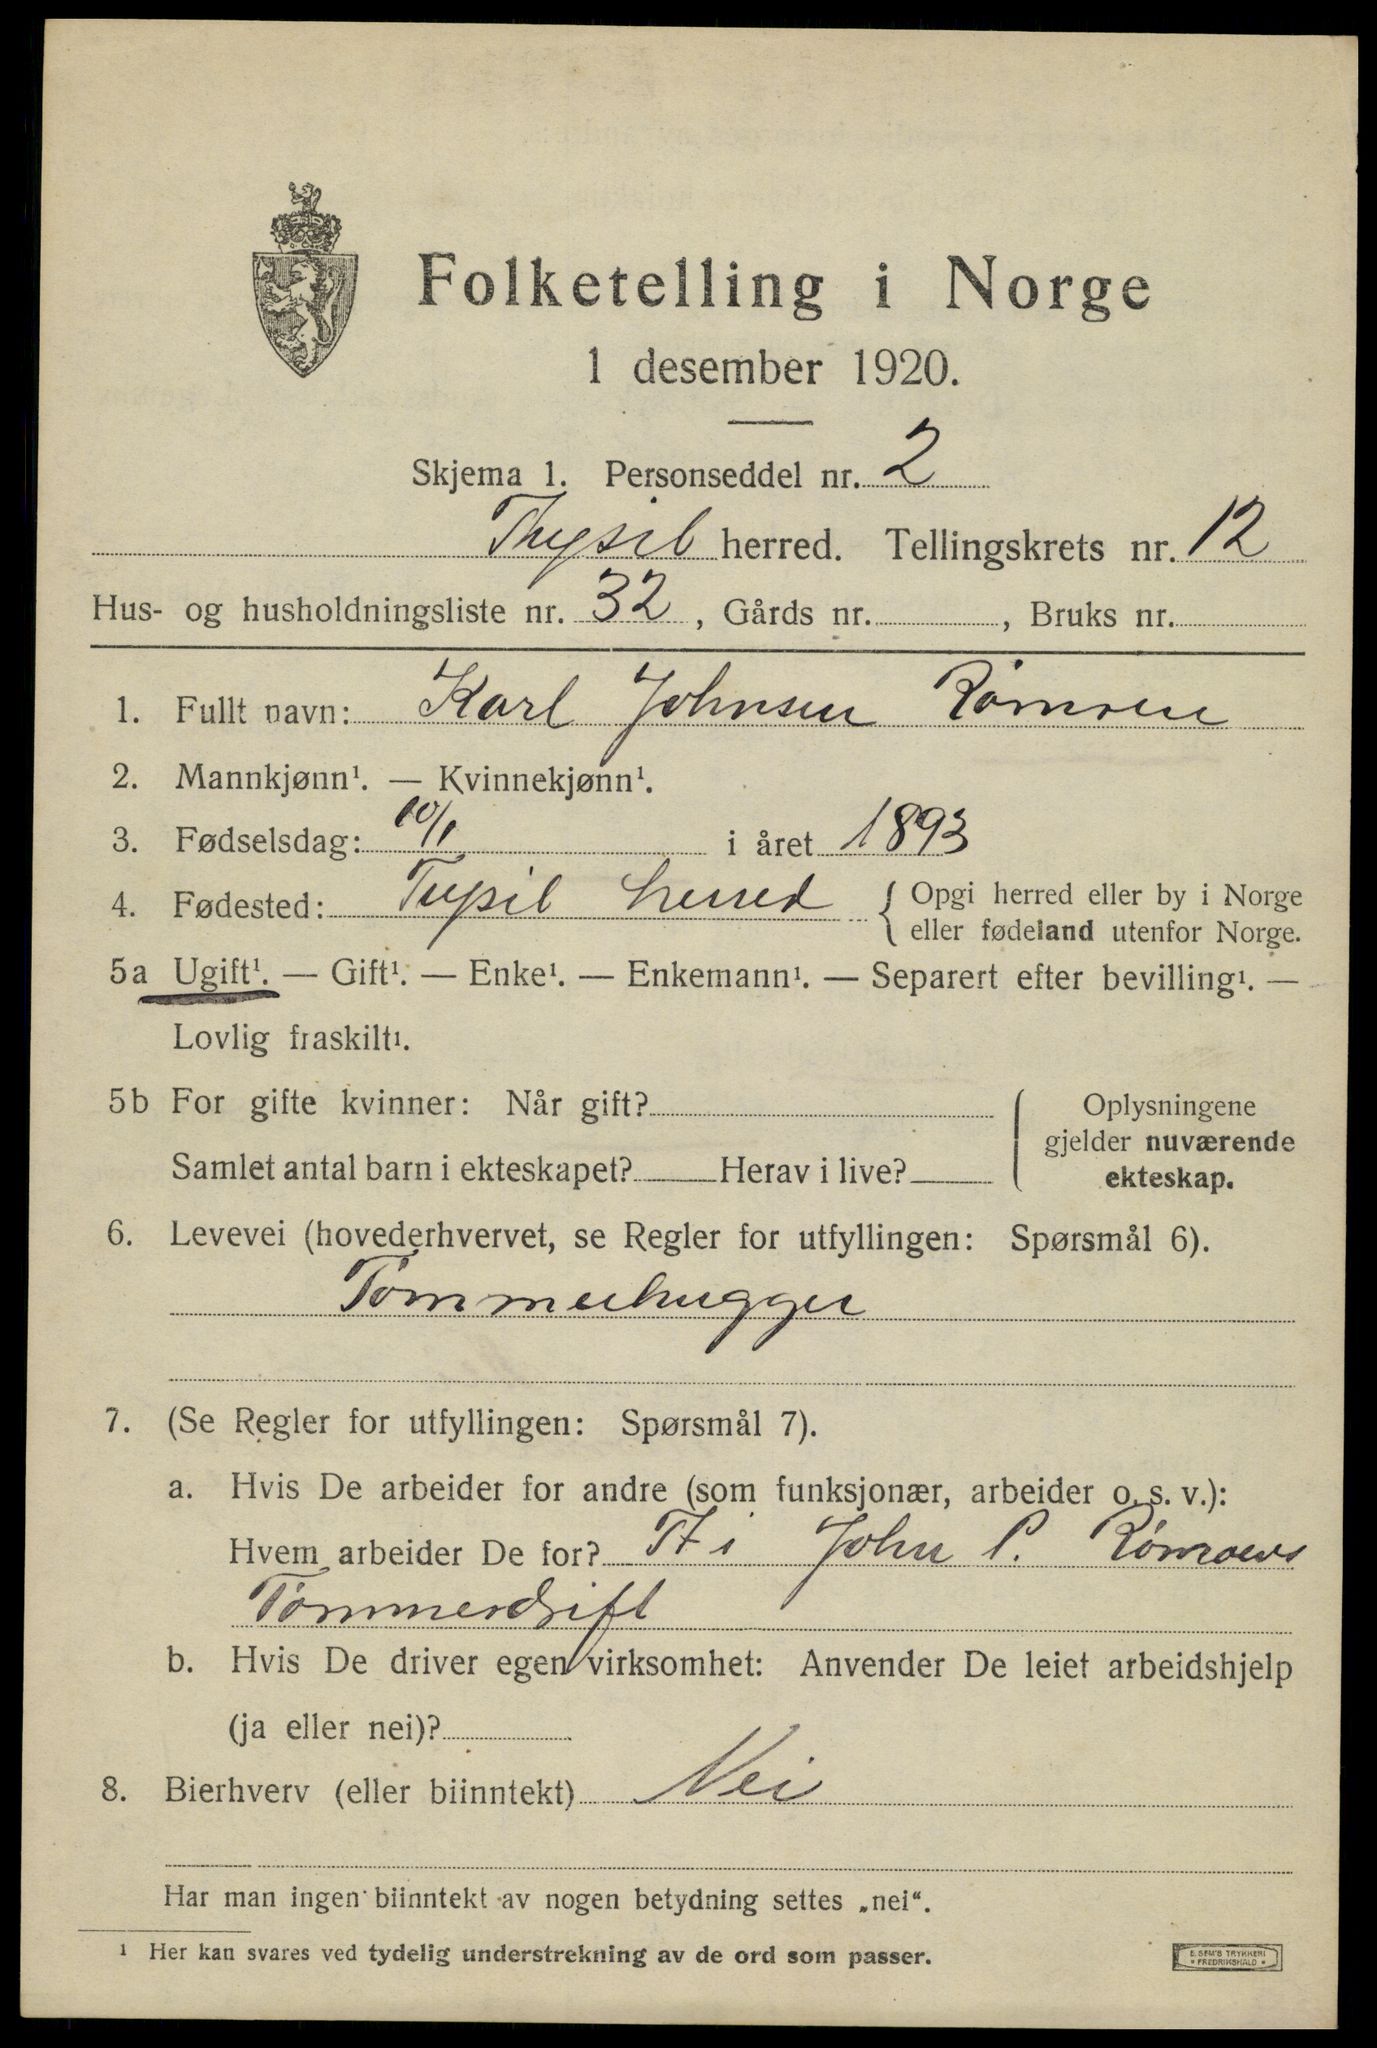 Folketelling i Norge
1 desember 1920.
Skjema 1. Personseddel nr. 2
Trysil herred. Tellingskrets nr. 12
Hus- og husholdningsliste nr. 32, Gårds nr. , Bruks nr.
1. Fullt navn: Karl Johnsen Rømoen
2. Mannkjønn¹. — Kvinnekjønn¹.
3. Fødselsdag: 10/1 i året 1893
4. Fødested: Trysil herred { Opgi herred eller by i Norge
eller fødeland utenfor Norge.
5a Ugift¹. — Gift¹. — Enke¹. — Enkemann¹. — Separert efter bevilling¹. —
Lovlig fraskilt¹.
5b For gifte kvinner: Når gift?
Samlet antal barn i ekteskapet? Herav i live?
Oplysningene
gjelder nuværende
ekteskap.
6. Levevei (hovederhvervet, se Regler for utfyllingen: Spørsmål 6).
Tømmerhugger
7. (Se Regler for utfyllingen: Spørsmål 7).
a. Hvis De arbeider for andre (som funksjonær, arbeider o. s. v.):
Hvem arbeider De for? i John P. Rømoens
Tømmerdrift
b. Hvis De driver egen virksomhet: Anvender De leiet arbeidshjelp
(ja eller nei)?
8. Bierhverv (eller biinntekt) Nei
Har man ingen biinntekt av nogen betydning settes „nei".
¹ Her kan svares ved tydelig understrekning av de ord som passer.
E. SEM'S TRYKKERI
* FREDRIKSHALD *